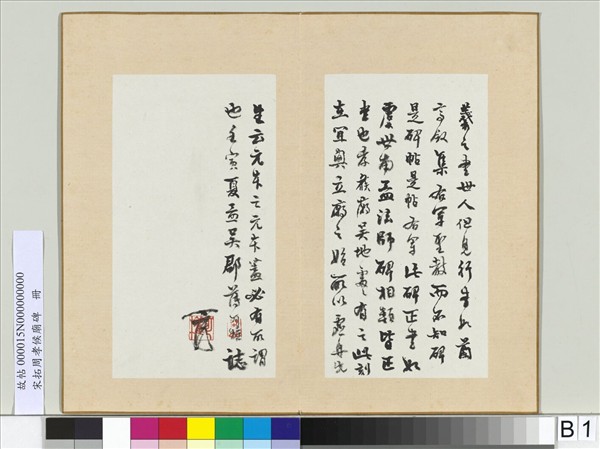 羲之書世人但見行書如蘭
亭敘集右軍聖教而不知碑
是碑帖是帖右軍此碑正書如
虞世南孟法師碑相類皆正
書也孝侯廟吳地處有之此刻
在宜興立廟之始 以虛舟先
生云元朱之元本蓋必有所謂
也壬寅夏孟吳郡 誌
故帖 000015N000000000
宋拓周孝侯廟碑 冊
B 1